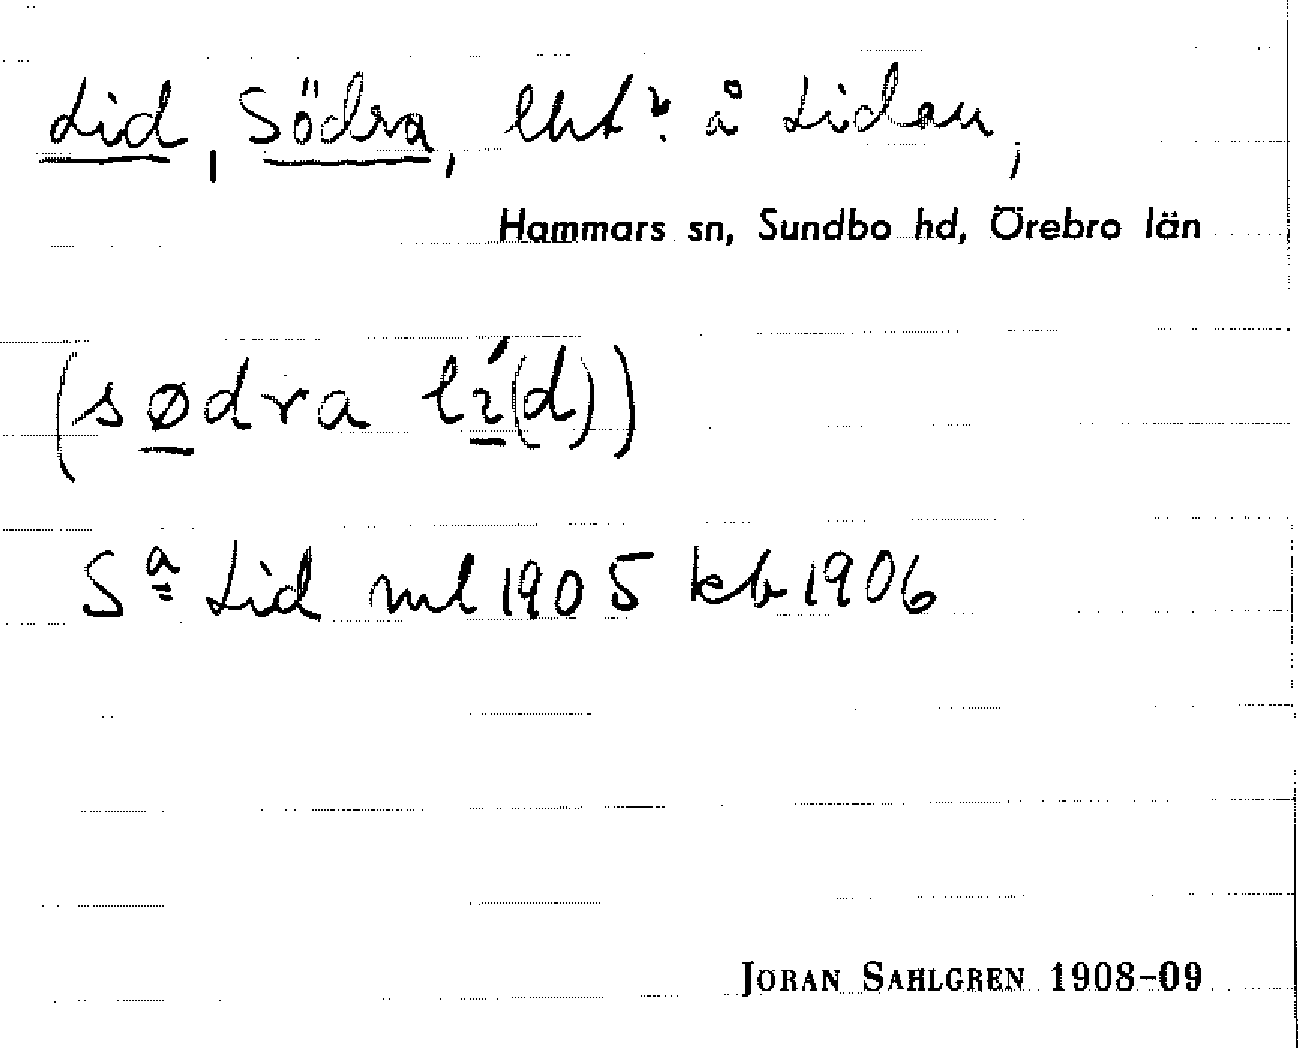 Lid, Södra, lht r. å Lidan,
Hammars sn, Sundbo hd, Örebro län
(sødra lí(d))
Sa Lid ml 1905 kb 1906
JÖRAN SAHLGREN 1908-09